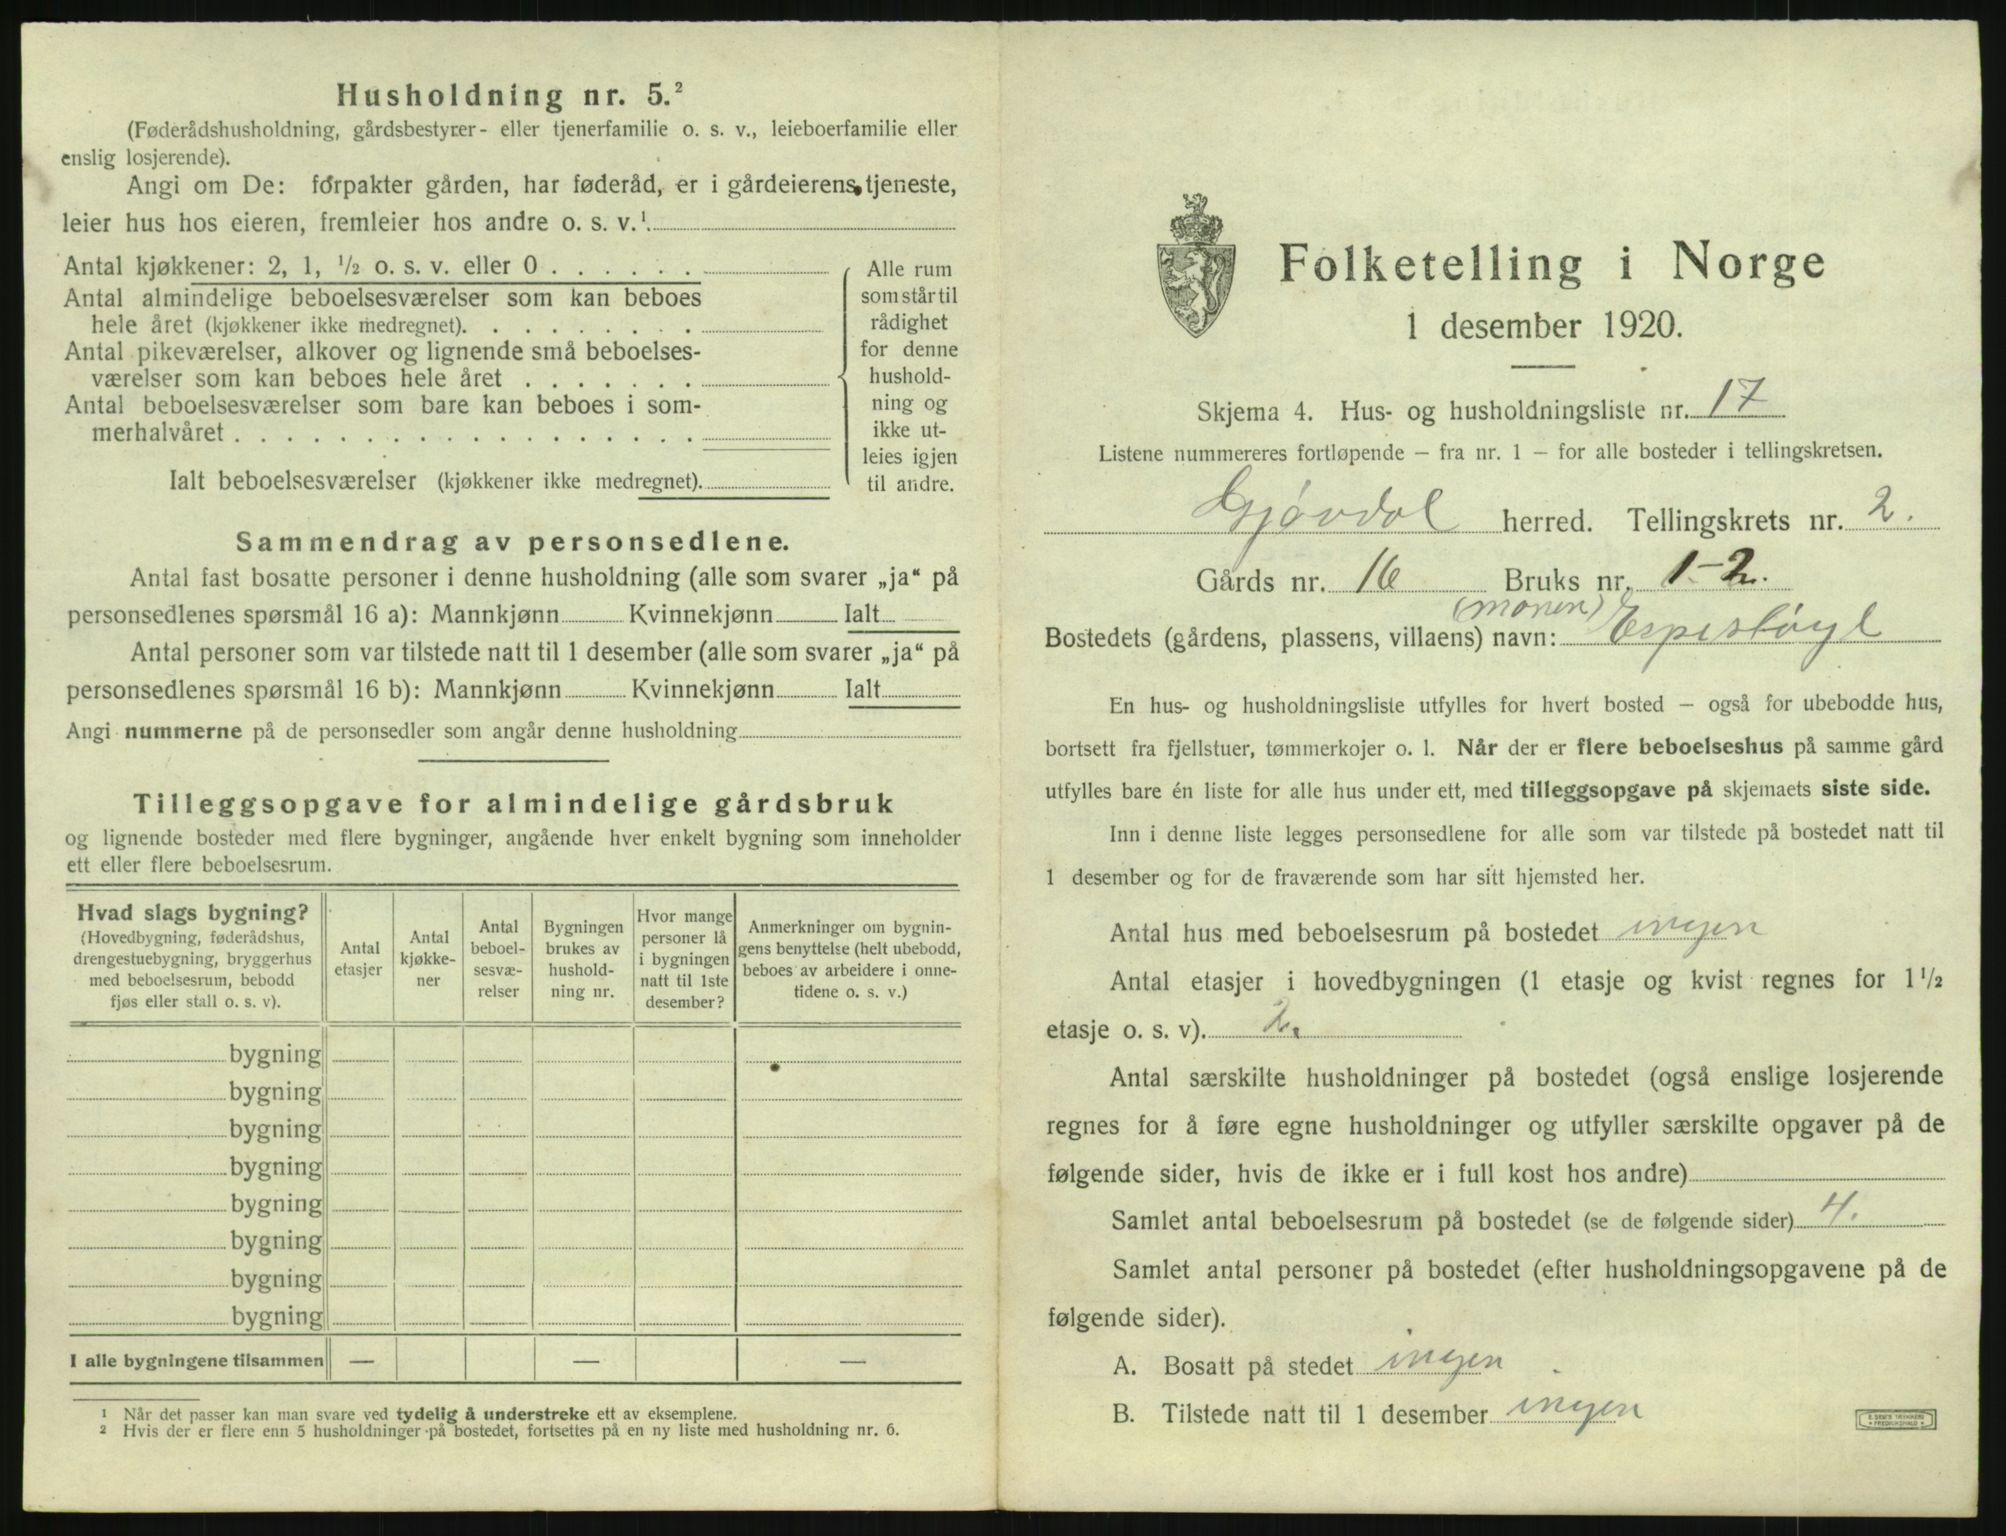 Husholdning nr. 5.²
(Føderådshusholdning, gårdsbestyrer- eller tjenerfamilie o. s. v., leieboerfamilie eller
enslig losjerende).
Angi om De: forpakter gården, har føderåd, er i gårdeierens tjeneste,
leier hus hos eieren, fremleier hos andre o. s. v.¹
Antal kjøkkener: 2, 1, ½ o. s. v. eller 0
Antal almindelige beboelsesværelser som kan beboes
hele året (kjøkkener ikke medregnet).
Antal pikeværelser, alkover og lignende små beboelses-
værelser som kan beboes hele året
Antal beboelsesværelser som bare kan beboes i som-
merhalvåret
Ialt beboelsesværelser (kjøkkener ikke medregnet).
Alle rum
som står til
rådighet
for denne
hushold-
ning og
ikke ut-
leies igjen
til andre.
Sammendrag av personsedlene.
Antal fast bosatte personer i denne husholdning (alle som svarer „ja“ på
personsedlenes spørsmål 16 a): Mannkjønn Kvinnekjønn Ialt
Antal personer som var tilstede natt til 1 desember (alle som svarer „ja“ på
personsedlenes spørsmål 16 b): Mannkjønn Kvinnekjønn Ialt
Angi nummerne på de personsedler som angår denne husholdning
Tilleggsopgave for almindelige gårdsbruk
og lignende bosteder med flere bygninger, angående hver enkelt bygning som inneholder
ett eller flere beboelsesrum.
Hvad slags bygning?
(Hovedbygning, føderådshus,
drengestuebygning, bryggerhus
med beboelsesrum, bebodd
fjøs eller stall o. s. v).
Antal
etasjer
Antal
kjøkke-
ner
Antal
beboel-
sesvæ-
relser
Bygningen
brukes av
hushold-
ning nr.
Hvor mange
personer lå
i bygningen
natt til 1ste
desember?
Anmerkninger om bygnin-
gens benyttelse (helt ubebodd,
beboes av arbeidere i onne-
tidene o. s. v.)
bygning
bygning
bygning
bygning
bygning
bygning
bygning
bygning
I alle bygningene tilsammen — — —
¹ Når det passer kan man svare ved tydelig å understreke ett av eksemplene.
² Hvis der er flere enn 5 husholdninger på bostedet, fortsettes på en ny liste med husholdning nr. 6.
Folketelling i Norge
1 desember 1920.
Skjema 4. Hus- og husholdningsliste nr. 17
Listene nummereres fortløpende – fra nr. 1 – for alle bosteder i tellingskretsen.
Gjøvdal herred. Tellingskrets nr. 2.
Gårds nr. 16 Bruks nr. 1-2.
(monen)
Bostedets (gårdens, plassens, villaens) navn: Espestøyl
En hus- og husholdningsliste utfylles for hvert bosted – også for ubebodde hus,
bortsett fra fjellstuer, tømmerkojer o. l. Når der er flere beboelseshus på samme gård
utfylles bare én liste for alle hus under ett, med tilleggsopgave på skjemaets siste side.
Inn i denne liste legges personsedlene for alle som var tilstede på bostedet natt til
1 desember og for de fraværende som har sitt hjemsted her.
Antal hus med beboelsesrum på bostedet ingen
Antal etasjer i hovedbygningen (1 etasje og kvist regnes for 1½
etasje o. s. v). 2.
Antal særskilte husholdninger på bostedet (også enslige losjerende
regnes for å føre egne husholdninger og utfyller særskilte opgaver på de
følgende sider, hvis de ikke er i full kost hos andre)
Samlet antal beboelsesrum på bostedet (se de følgende sider) 4.
Samlet antal personer på bostedet (efter husholdningsopgavene på de
følgende sider).
A. Bosatt på stedet ingen
B. Tilstede natt til 1 desember ingen